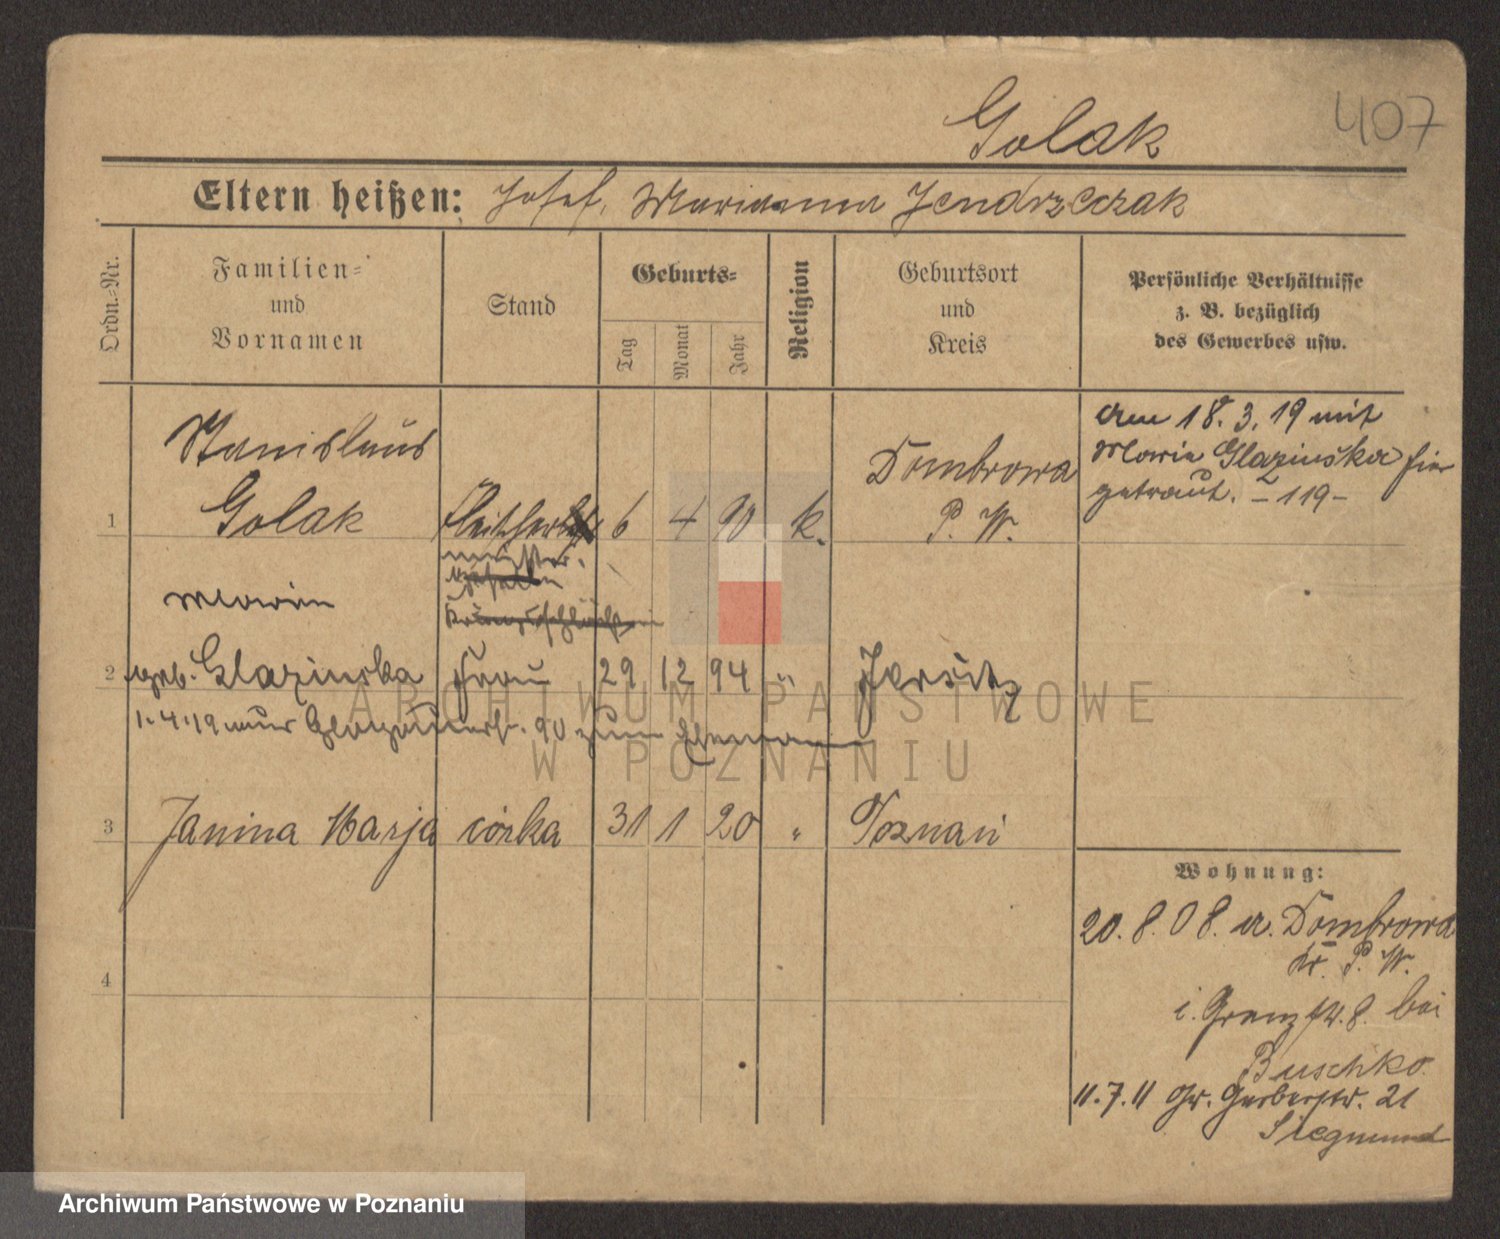 407
Golak
Eltern heißen: Josef, Marianna Jendrzeczak
Ordn.=Nr.
Familien=
und
Vornamen
Stand
Geburts=
Tag
Monat
Jahr
Religion
Geburtsort
und
Kreis
Persönliche Verhältnisse
z. B. bezüglich
des Gewerbes usw.
Stanislaus
1 Golak Fleischer 6 4 90 k.
meister.
Dombrowa
P. W.
am 18. 3. 19 mit
Maria Glazinska hier
getraut. – 119 –
Maria
2 geb. Glazinska Frau 29 12 94 " Jersitz
1.4.19 nach Glogauerstr. 90 zum Ehemann
3 Janina Marja córka 31 1 20 " Poznań
4
Wohnung:
20. 8. 08. a. Dombrowa
Kr. P. W.
i. Grenzstr. 8. bei
Buschko.
11.7.11 Gr. Gerberstr. 21
Siegmund
ARCHIWUM PAŃSTWOWE
W POZNANIU
Archiwum Państwowe w Poznaniu